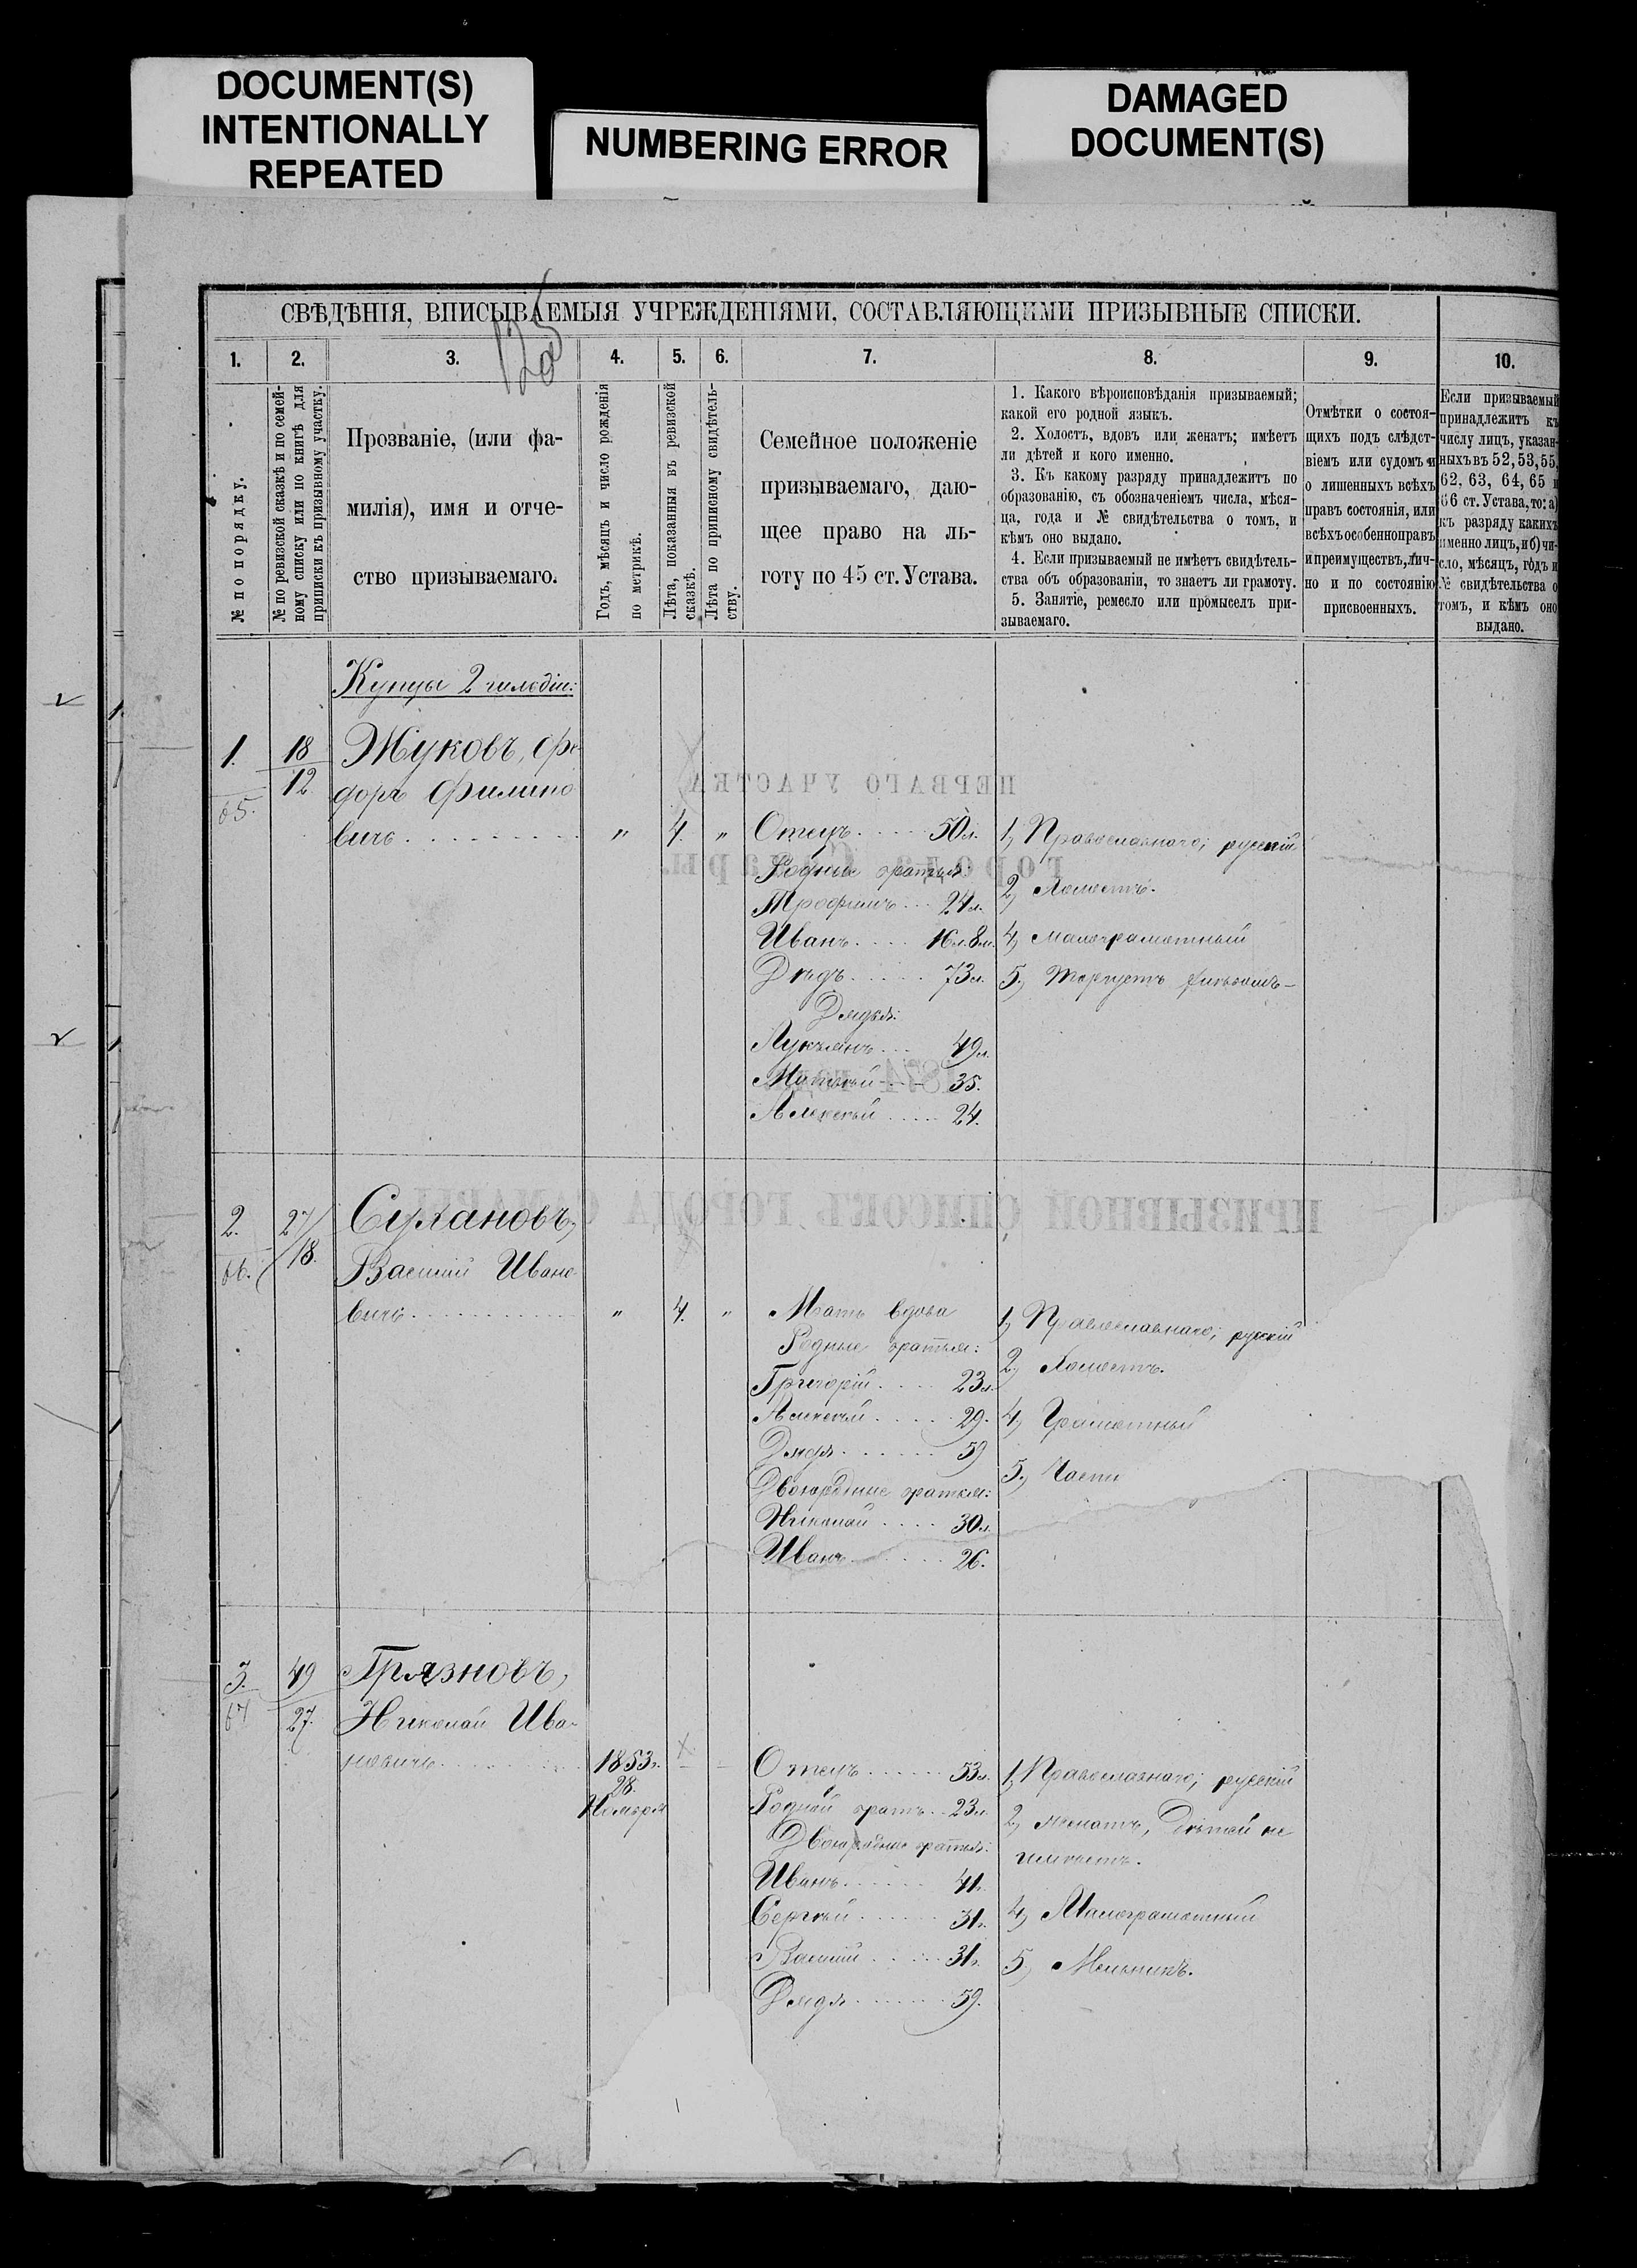 DOCUMENT(S)
INTENTIONALLY
REPEATED
NUMBERING ERROR
DAMAGED
DOCUMENT(S)
СВѢДѢНІЯ, ВПИСЫВАЕМЫЯ УЧРЕЖДЕНІЯМИ, СОСТАВЛЯЮЩИМИ ПРИЗЫВНЫЕ СПИСКИ.
1.
2.
3.
4.
5.
6.
7.
8.
9.
10.
№ по порядку.
№ по ревизской сказкѣ и по семей-
ному списку или по книгѣ для
приписки къ призывному участку.
Прозваніе, (или фа-
милія), имя и отче-
ство призываемаго.
Годъ, мѣсяцъ и число рожденія
по метрикѣ.
Лѣта, показанныя въ ревизской
сказкѣ.
Лѣта по приписному свидѣтель-
ству.
Семейное положеніе
призываемаго, даю-
щее право на ль-
готу по 45 ст. Устава.
1. Какого вѣроисповѣданія призываемый;
какой его родной языкъ.
2. Холостъ, вдовъ или женатъ; имѣетъ
ли дѣтей и кого именно.
3. Къ какому разряду принадлежитъ по
образованію, съ обозначеніемъ числа, мѣся-
ца, года и № свидѣтельства о томъ, и
кѣмъ оно выдано.
4. Если призываемый не имѣетъ свидѣтель-
ства объ образованіи, то знаетъ ли грамоту.
5. Занятіе, ремесло или промыселъ при-
зываемаго.
Отмѣтки о состоя-
щихъ подъ слѣдст-
віемъ или судомъ и
о лишенныхъ всѣхъ
правъ состоянія, или
всѣхъ особенно правъ
и преимуществъ, лич-
но и по состоянію
присвоенныхъ.
Если призываемый
принадлежитъ къ
числу лицъ, указан-
ныхъ въ 52, 53, 55,
62, 63, 64, 65 и
66 ст. Устава, то: а)
къ разряду какихъ
именно лицъ, и б) чи-
сло, мѣсяцъ, годъ и
№ свидѣтельства о
томъ, и кѣмъ оно
выдано.
Купцы 2 гильдіи:
1.
65.
18
12.
Жуковъ, Фе-
доръ Филипо
вичъ
" 4. "
Отецъ 50 л.
Родные братья:
Трофимъ 24 л.
Иванъ 16 л. 8 м.
Дѣдъ 73 л.
Дядья:
Лукьянъ 49 л.
35.
Алексѣй 24.
1, Православнаго; русскій
2, Холостъ.
4, малограмотный
5, Торгуетъ
2.
66.
27/
18.
Сулановъ,
Василій Ивано-
вичъ
" 4. "
Мать вдова
Родные братья:
Григорій 23 л.
Алексѣй 29.
Дядя 59
Двоюродные братья:
Николай 30 л.
Иванъ 26.
1, Православнаго; русскій
2, Холостъ.
4, Грамотный
5,
3.
67
49
27.
Грязновъ,
Николай Ива-
новичъ
1853 г.
28.
Ноября
Отецъ 53 л.
Родной братъ 23 л.
Двоюродные братья:
Иванъ 41.
Сергѣй 31.
Василій 31.
Дядя 59.
1, Православнаго; русскій
2, женатъ, дѣтей не
имѣетъ.
4, Малограмотный
5, Мельникъ.